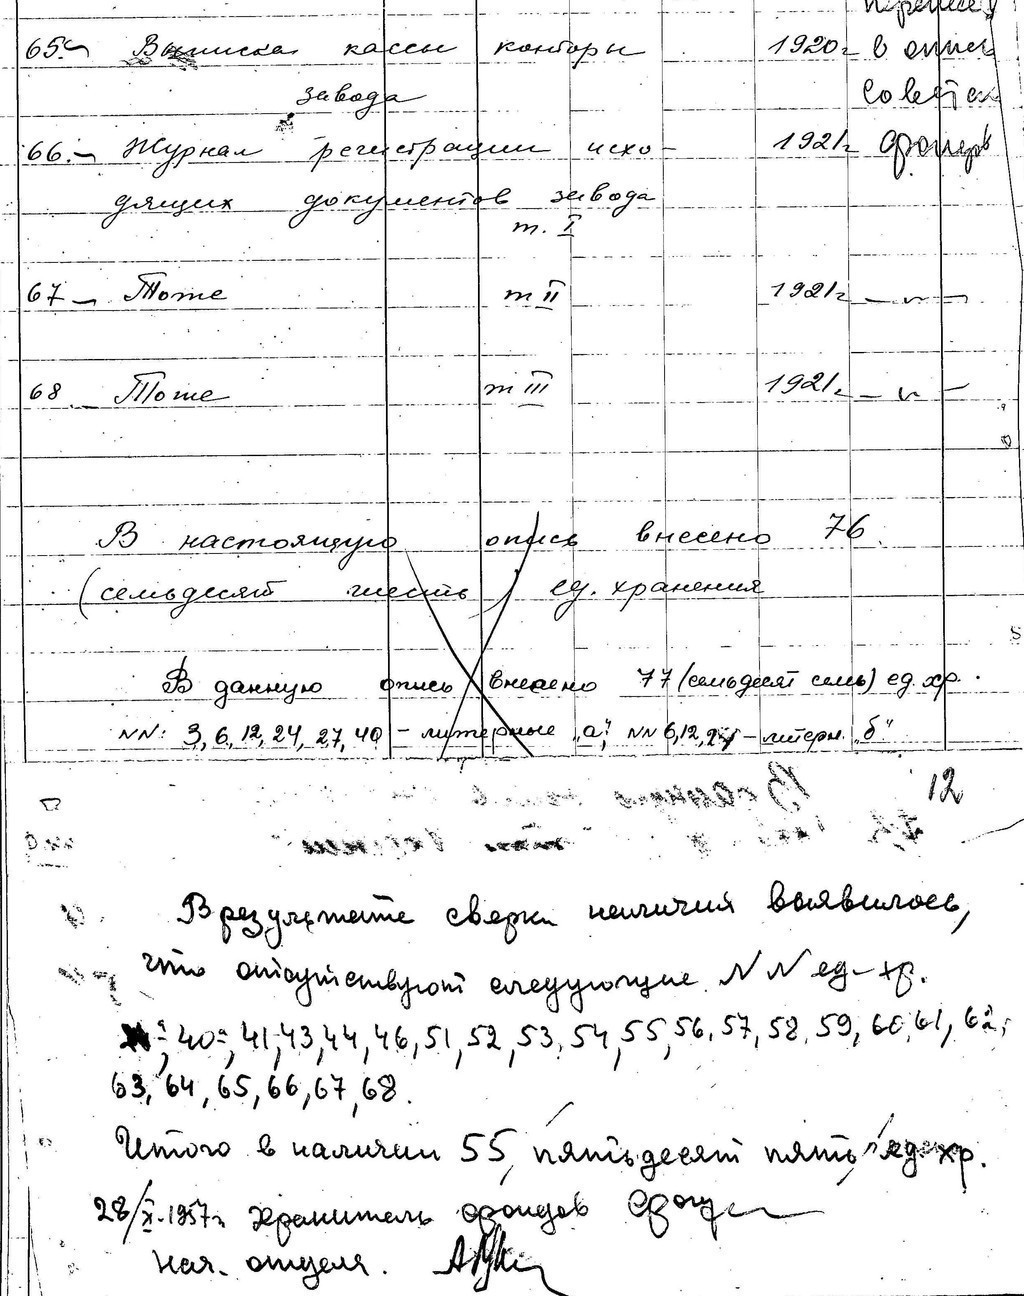 65. Выписка кассы конторы 1920г в опись
завода Советск
66. Журнал регистрации исхо- 1921г фондов
дящих документов завода
т. I
67 Тоже т II 1921г — " —
68. Тоже т III 1921г. — " —
В настоящую опись внесено 76
(семьдесят шесть) ед. хранения
В данную опись внесено 77 (семьдесят семь) ед. хр.
NN: 3, 6, 12, 24, 27, 40 - литерные "а", NN 6, 12, 24 - литерн. "б"
12
В результате сверки наличия выявилось,
что отсутствуют следующие NN ед-хр.
40, 41, 43, 44, 46, 51, 52, 53, 54, 55, 56, 57, 58, 59, 60, 61, 62,
63, 64, 65, 66, 67, 68.
Итого в наличии 55, пятьдесят пять, ед хр.
28/X-1957г. Хранитель фондов
Нач. отдела.